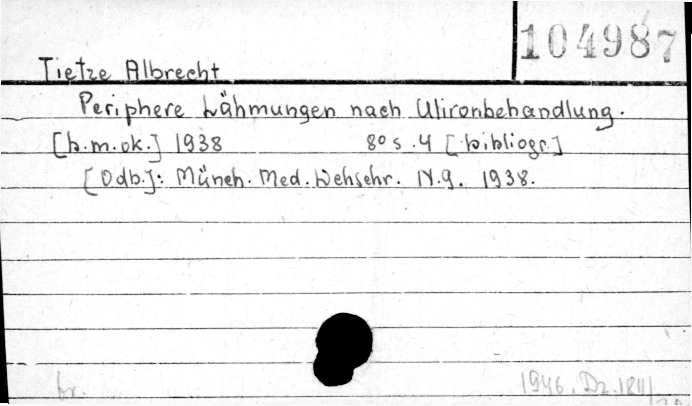 104987
Tietze Albrecht
Periphere Lähmungen nach Ulironbehandlung.
[b.m.ok.] 1938 8° s. 4 [bibliogr.]
[Odb.]: Münch. Med. Wchschr. Nr. 9. 1938.
br. 1946. Dz. 1841/